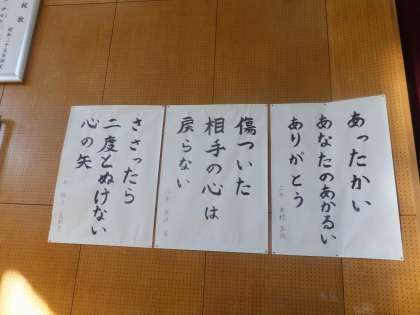 あったかい
あなたのあかるい
ありがとう
傷ついた
相手の心は
戻らない
ささったら
二度とぬけない
心の矢